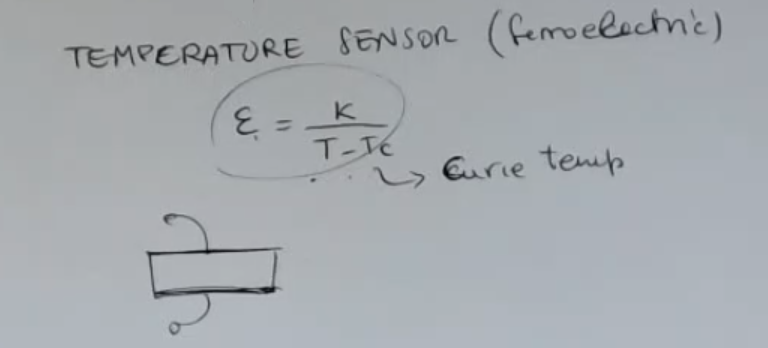 TEMPERATURE SENSOR (ferroelectric)
ε = K / T-Tc
Curie temp